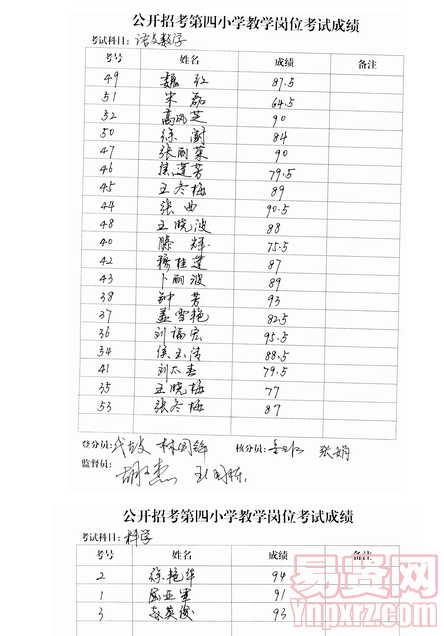 公开招考第四小学教学岗位考试成绩
考试科目：语文数学
考号 姓名 成绩 备注
49 魏红 87.5
51 宋磊 64.5
52 高凤芝 90
50 徐 84
47 张丽菜 90
46 焦莲芳 79.5
45 王冬梅 89
44 张曲 90.5
48 王晓波 88
40 滕辉 75.5
42 穆桂莲 87
43 卜丽波 89
38 钟芳 93
37 孟雪艳 82.5
36 刘福宏 95.5
34 侯玉清 88.5
41 刘太春 79.5
35 王晓梅 77
53 张冬梅 87
登分员： 林国锋 核分员： 张娟
监督员：
公开招考第四小学教学岗位考试成绩
考试科目：科学
考号 姓名 成绩 备注
2 徐艳华 94
1 屈亚军 91
3 英俊 93
易贤网
Ynpxrz.com